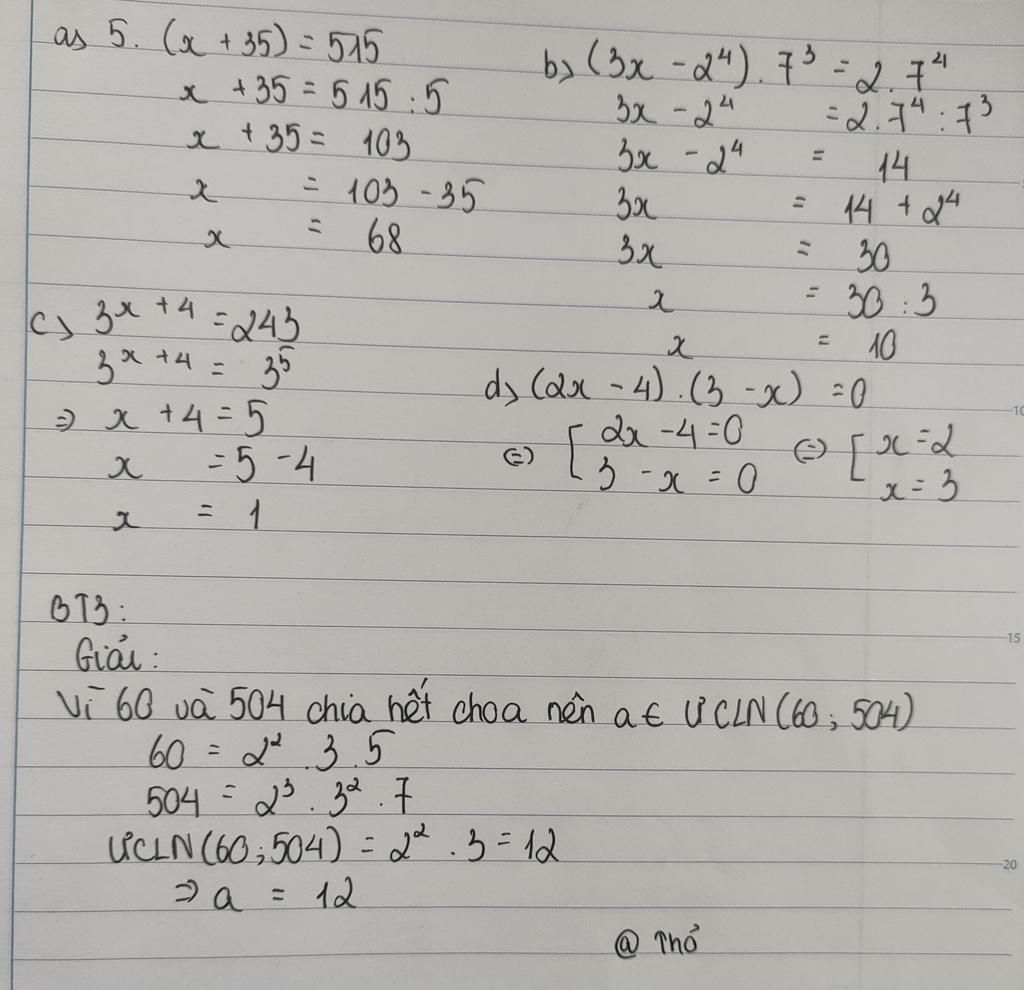 a, 5. (x + 35) = 515
x + 35 = 515 : 5
x + 35 = 103
x = 103 - 35
x = 68
b, (3x - 2⁴) . 7³ = 2 . 7⁴
3x - 2⁴ = 2 . 7⁴ : 7³
3x - 2⁴ = 14
3x = 14 + 2⁴
3x = 30
x = 30 : 3
x = 10
c, 3ˣ ⁺ ⁴ = 243
3ˣ ⁺ ⁴ = 3⁵
⇒ x + 4 = 5
x = 5 - 4
x = 1
d, (2x - 4) . (3 - x) = 0
⇔ [ 2x - 4 = 0 ⇔ [ x = 2
3 - x = 0 x = 3
BT3:
Giải:
Vì 60 và 504 chia hết cho a nên a ∈ ƯCLN(60; 504)
60 = 2² . 3 . 5
504 = 2³ . 3² . 7
ƯCLN(60; 504) = 2² . 3 = 12
⇒ a = 12
@ Thỏ
10
15
20